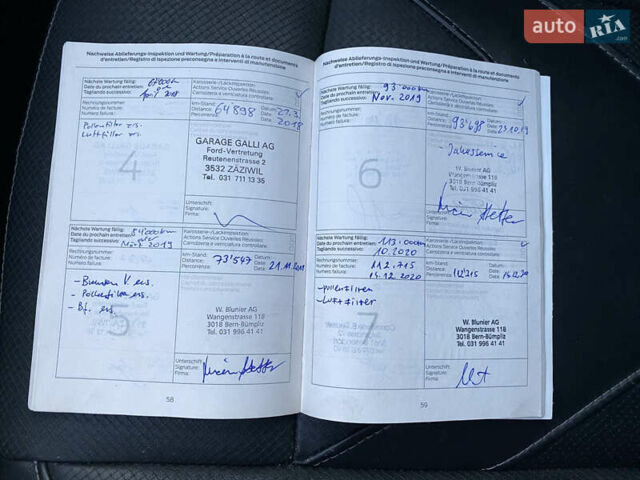 auto RIA
.com
Nachweise Ablieferungs-Inspektion und Wartung/Préparation à la route et documents
d'entretien/Registro di ispezione preconsegna e interventi di manutenzione
Nächste Wartung fällig:
Date du prochain entretien:
Tagliando successivo:
Karosserie-/Lackinspektion:
Actions Service Ouvertes Réussies:
Carrozzeria e verniciatura controllate:
Rechnungsnummer:
Numéro de facture:
Numero fattura:
km-Stand:
Distance:
Percorrenza:
64898
Datum:
Date:
Data:
27.3.
2018
Pollenfilter ers.
Luftfilter ers.
4
GARAGE GALLI AG
Ford-Vertretung
Reutenenstrasse 2
3532 ZÄZIWIL
Tel. 031 711 13 35
Unterschrift:
Signature:
Firma:
Nächste Wartung fällig:
Date du prochain entretien:
Tagliando successivo:
84000km
März 2019
Karosserie-/Lackinspektion:
Actions Service Ouvertes Réussies:
Carrozzeria e verniciatura controllate:
Rechnungsnummer:
Numéro de facture:
Numero fattura:
km-Stand:
Distance:
Percorrenza:
73'547
Datum:
Date:
Data:
21.11.2018
- Pollenfilter ers.
- Bf. ers.
5
W. Blunier AG
Wangenstrasse 118
3018 Bern-Bümpliz
Tel. 031 996 41 41
Unterschrift:
Signature:
Firma:
58
Nachweise Ablieferungs-Inspektion und Wartung/Préparation à la route et documents
d'entretien/Registro di ispezione preconsegna e interventi di manutenzione
Nächste Wartung fällig:
Date du prochain entretien:
Tagliando successivo:
93.000km
Nov. 2019
Karosserie-/Lackinspektion:
Actions Service Ouvertes Réussies:
Carrozzeria e verniciatura controllate:
Rechnungsnummer:
Numéro de facture:
Numero fattura:
km-Stand:
Distance:
Percorrenza:
93'698
Datum:
Date:
Data:
23.10.19
- Jahresservice
6
W. Blunier AG
Wangenstrasse 118
3018 Bern-Bümpliz
Tel. 031 996 41 41
Unterschrift:
Signature:
Firma:
Nächste Wartung fällig:
Date du prochain entretien:
Tagliando successivo:
113.000km
10.2020
Karosserie-/Lackinspektion:
Actions Service Ouvertes Réussies:
Carrozzeria e verniciatura controllate:
Rechnungsnummer:
Numéro de facture:
Numero fattura:
112.215
15.12.2020
km-Stand:
Distance:
Percorrenza:
112'215
Datum:
Date:
Data:
- Pollenfilter
- Luftfilter
7
W. Blunier AG
Wangenstrasse 118
3018 Bern-Bümpliz
Tel. 031 996 41 41
Unterschrift:
Signature:
Firma:
59